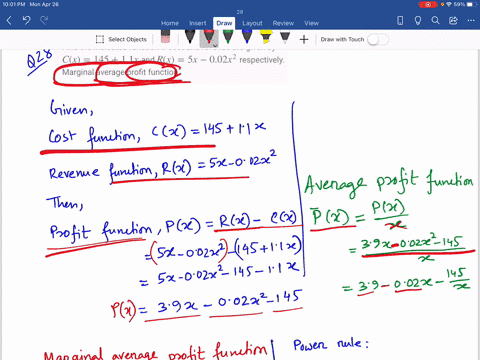 10:01 PM Mon Apr 26
59%
28
Home Insert Draw Layout Review View
Select Objects
Draw with Touch
C(x) = 145 + 1.1x and R(x) = 5x − 0.02x² respectively.
Q28
Marginal average profit function
Given,
Cost function, C(x) = 145 + 1.1x
Revenue function, R(x) = 5x - 0.02x²
Then,
Profit function, P(x) = R(x) - C(x)
= (5x - 0.02x²) - (145 + 1.1x)
= 5x - 0.02x² - 145 - 1.1x
P(x) = 3.9x - 0.02x² - 145
Average profit function
P̄(x) = P(x)/x
= (3.9x - 0.02x² - 145)/x
= 3.9 - 0.02x - 145/x
Marginal average profit function
Power rule: